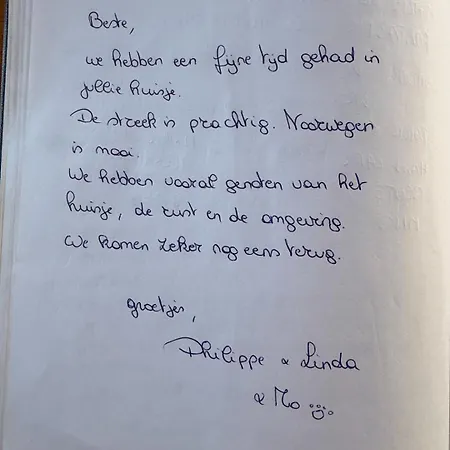 Beste,
we hebben een fijne tijd gehad in
jullie huisje.
De streek is prachtig. Noorwegen
is mooi.
We hebben vooral genoten van het
huisje, de rust en de omgeving.
We komen zeker nog eens terug.
groetjes,
Philippe & Linda
& Mo